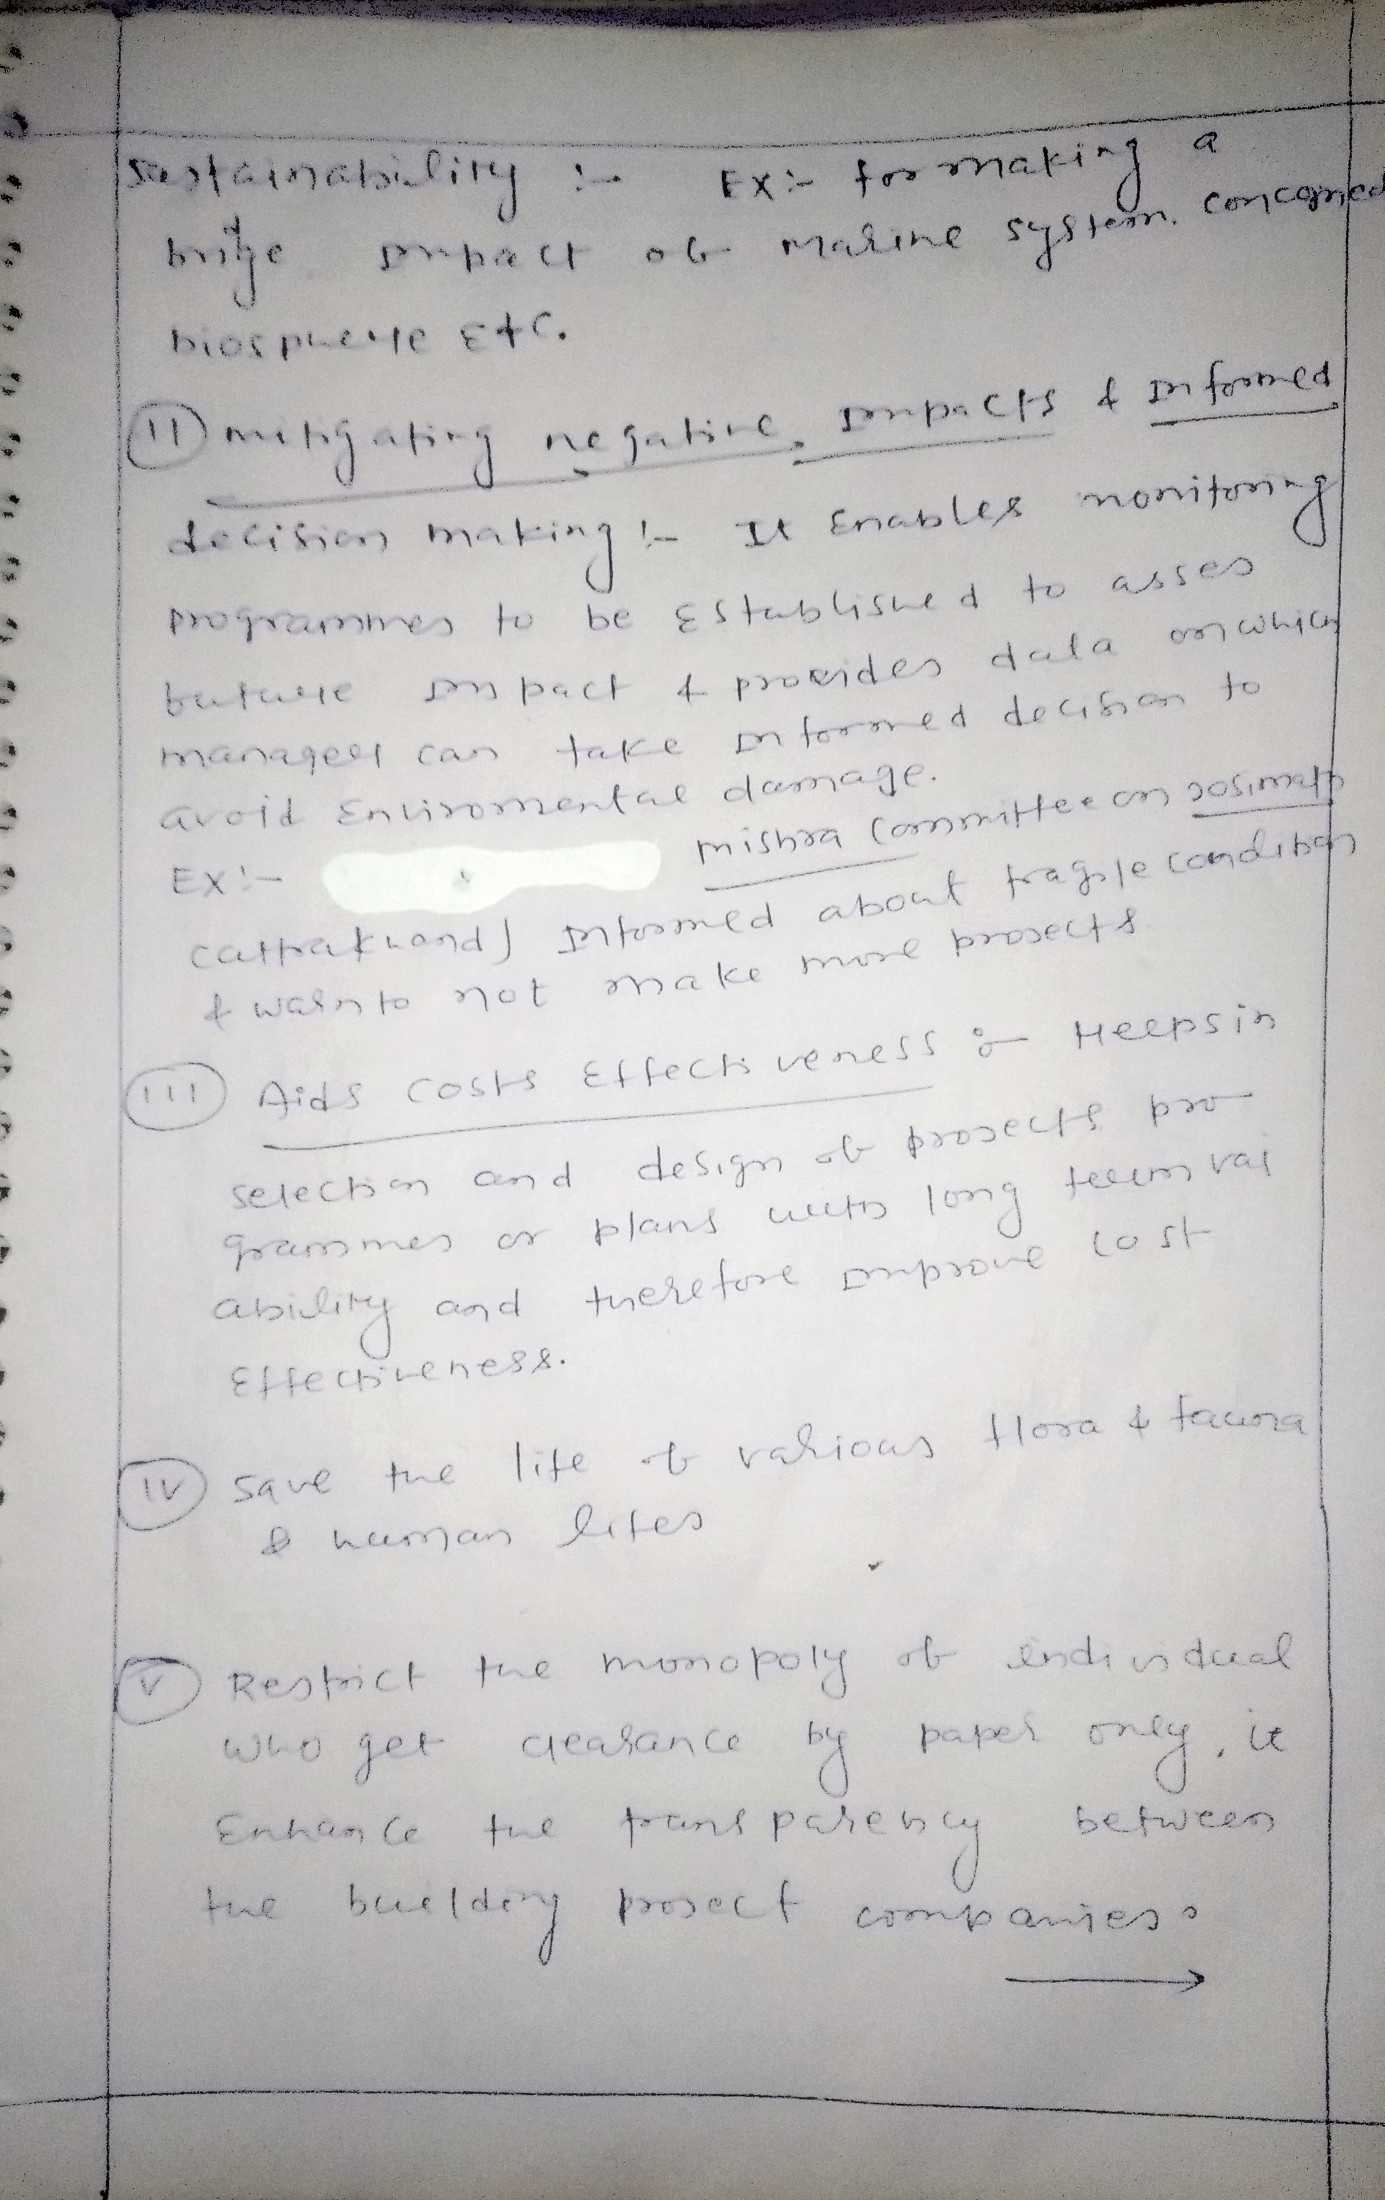 Sustainability :- EX:- for making a
bridge impact of marine system, concerned
biosphere Etc.
(II) mitigating negative impacts & Informed
decision making :- It Enables monitoring
programmes to be Established to asses
future impact & provides data on which
manager can take informed decision to
avoid Enviromental damage.
EX:- mishra Committee on Josimath
(uttrakhand) Informed about fragile condition
& warn to not make more projects.
(III) Aids costs Effectiveness :- Helps in
selection and design of projects pro
grammes or plans with long term vai
ability and therefore improve cost
Effectiveness.
(IV) Save the life of various flora & fauna
& human lifes
(V) Restrict the monopoly of individual
who get clearance by paper only, it
Enhance the transparency between
the building project companies.